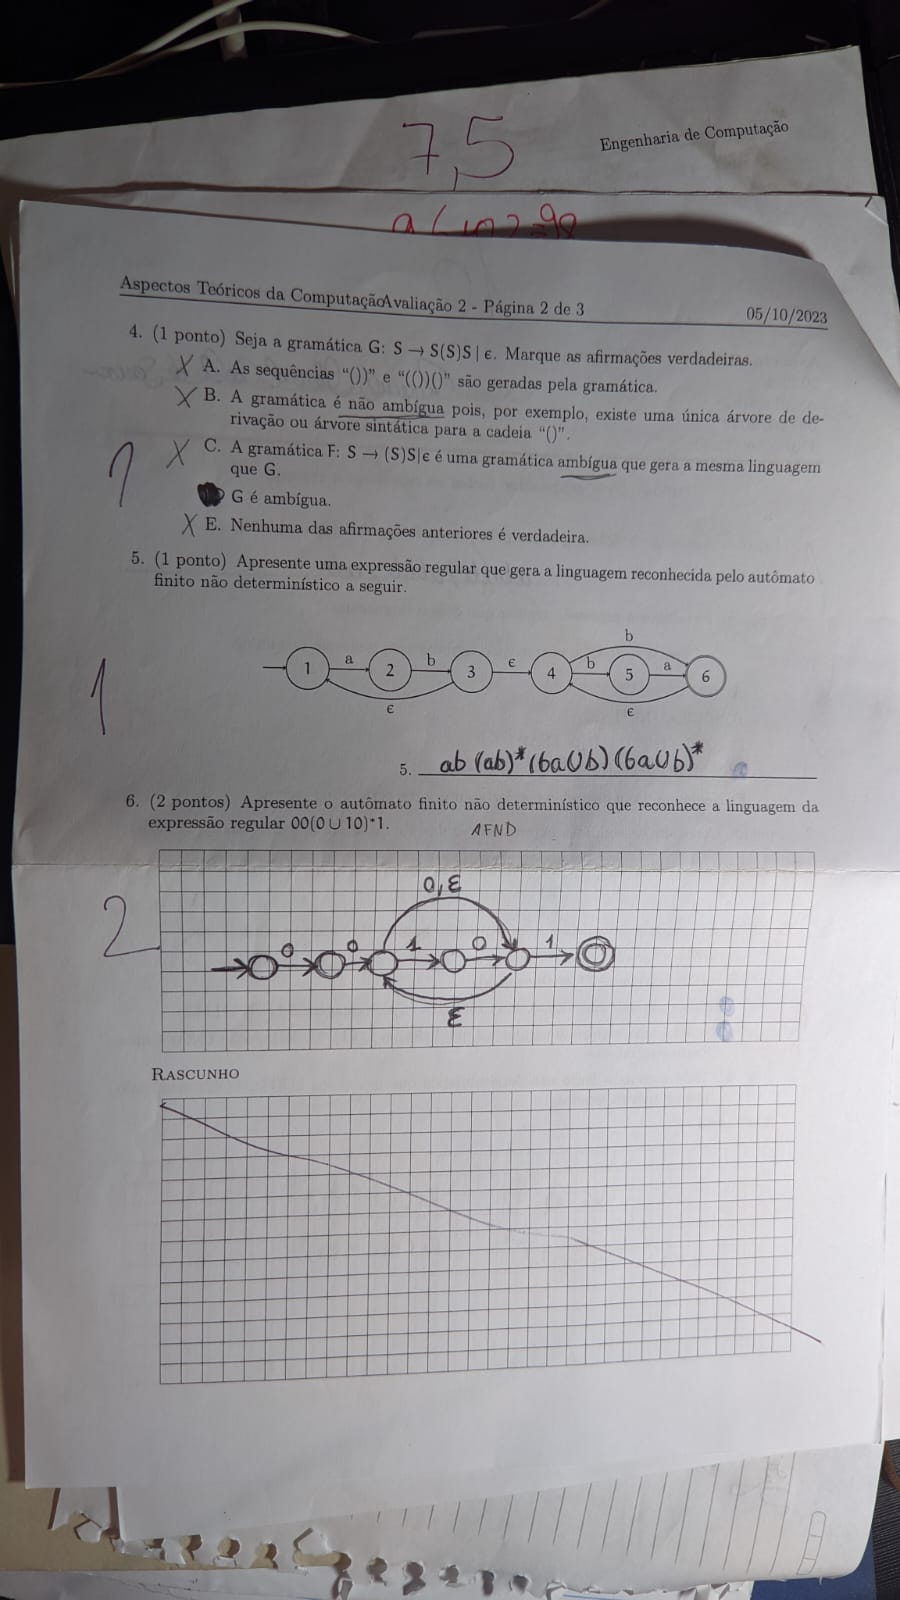 7,5
Engenharia de Computação
Aspectos Teóricos da ComputaçãoAvaliação 2 - Página 2 de 3
05/10/2023
4. (1 ponto) Seja a gramática G: S → S(S)S | ϵ. Marque as afirmações verdadeiras.
X A. As sequências “())” e “(())()” são geradas pela gramática.
X B. A gramática é não ambígua pois, por exemplo, existe uma única árvore de de-
rivação ou árvore sintática para a cadeia “()”.
1
X C. A gramática F: S → (S)S|ϵ é uma gramática ambígua que gera a mesma linguagem
que G.
G é ambígua.
X E. Nenhuma das afirmações anteriores é verdadeira.
5. (1 ponto) Apresente uma expressão regular que gera a linguagem reconhecida pelo autômato
finito não determinístico a seguir.
b
1 a 2 b 3 ϵ 4 b 5 a 6
ϵ ϵ
1
5. ab(ab)*(baUb)(baUb)*
6. (2 pontos) Apresente o autômato finito não determinístico que reconhece a linguagem da
expressão regular 00(0 ∪ 10)*1.
AFND
2
0,ε
0 0 1 0 1
ε
RASCUNHO